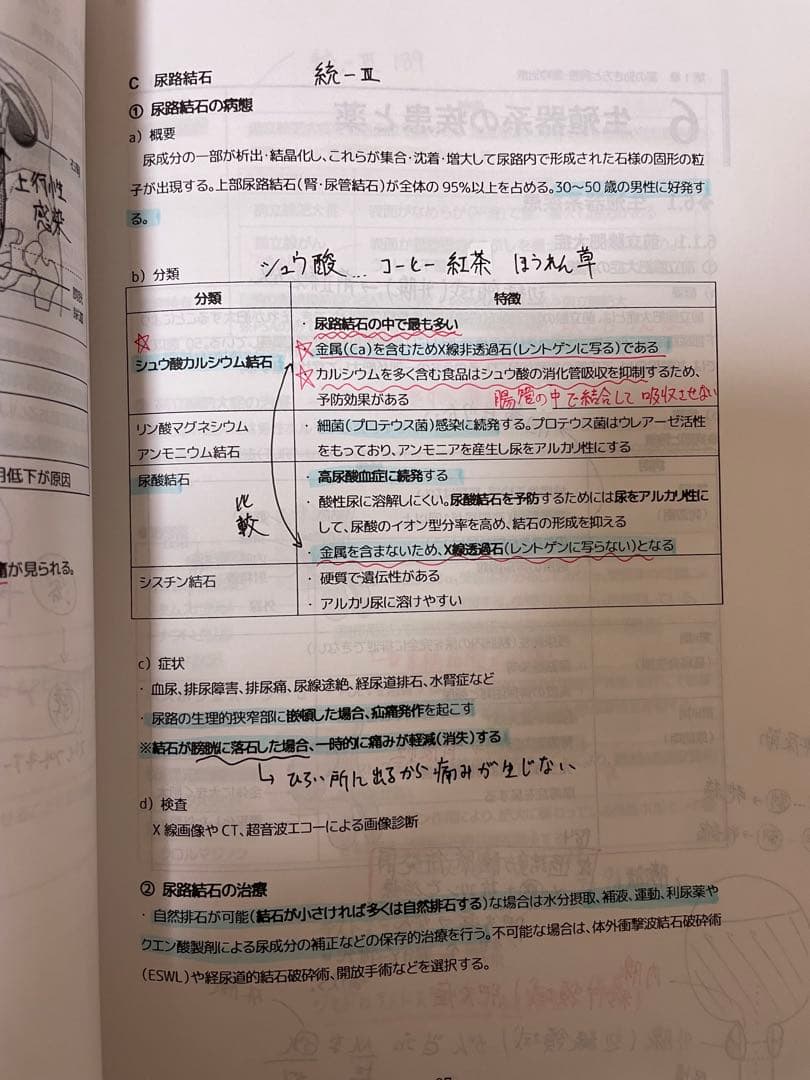 C 尿路結石 統一Ⅲ
① 尿路結石の病態
a）概要
尿成分の一部が析出・結晶化し、これらが集合・沈着・増大して尿路内で形成された石様の固形の粒
子が出現する。上部尿路結石（腎・尿管結石）が全体の 95%以上を占める。30～50 歳の男性に好発す
る。
上行性
感染
b）分類 シュウ酸… コーヒー 紅茶 ほうれん草
分類 特徴
・尿路結石の中で最も多い
☆ 金属（Ca）を含むためX線非透過石（レントゲンに写る）である
☆
シュウ酸カルシウム結石
☆ カルシウムを多く含む食品はシュウ酸の消化管吸収を抑制するため、
予防効果がある 腸管の中で結合して 吸収させない
リン酸マグネシウム
アンモニウム結石
・細菌（プロテウス菌）感染に続発する。プロテウス菌はウレアーゼ活性
をもっており、アンモニアを産生し尿をアルカリ性にする
尿酸結石
・高尿酸血症に続発する
・酸性尿に溶解しにくい。尿酸結石を予防するためには尿をアルカリ性に
して、尿酸のイオン型分率を高め、結石の形成を抑える
・金属を含まないため、X線透過石（レントゲンに写らない）となる
比較
シスチン結石
・硬質で遺伝性がある
・アルカリ尿に溶けやすい
低下が原因
が見られる。
c）症状
・血尿、排尿障害、排尿痛、尿線途絶、経尿道排石、水腎症など
・尿路の生理的狭窄部に嵌頓した場合、疝痛発作を起こす
※結石が膀胱に落石した場合、一時的に痛みが軽減（消失）する
↳ ひろい所に出るから痛みが生じない
d）検査
X線画像や CT、超音波エコーによる画像診断
② 尿路結石の治療
・自然排石が可能（結石が小さければ多くは自然排石する）な場合は水分摂取、補液、運動、利尿薬や
クエン酸製剤による尿成分の補正などの保存的治療を行う。不可能な場合は、体外衝撃波結石破砕術
（ESWL）や経尿道的結石破砕術、開放手術などを選択する。